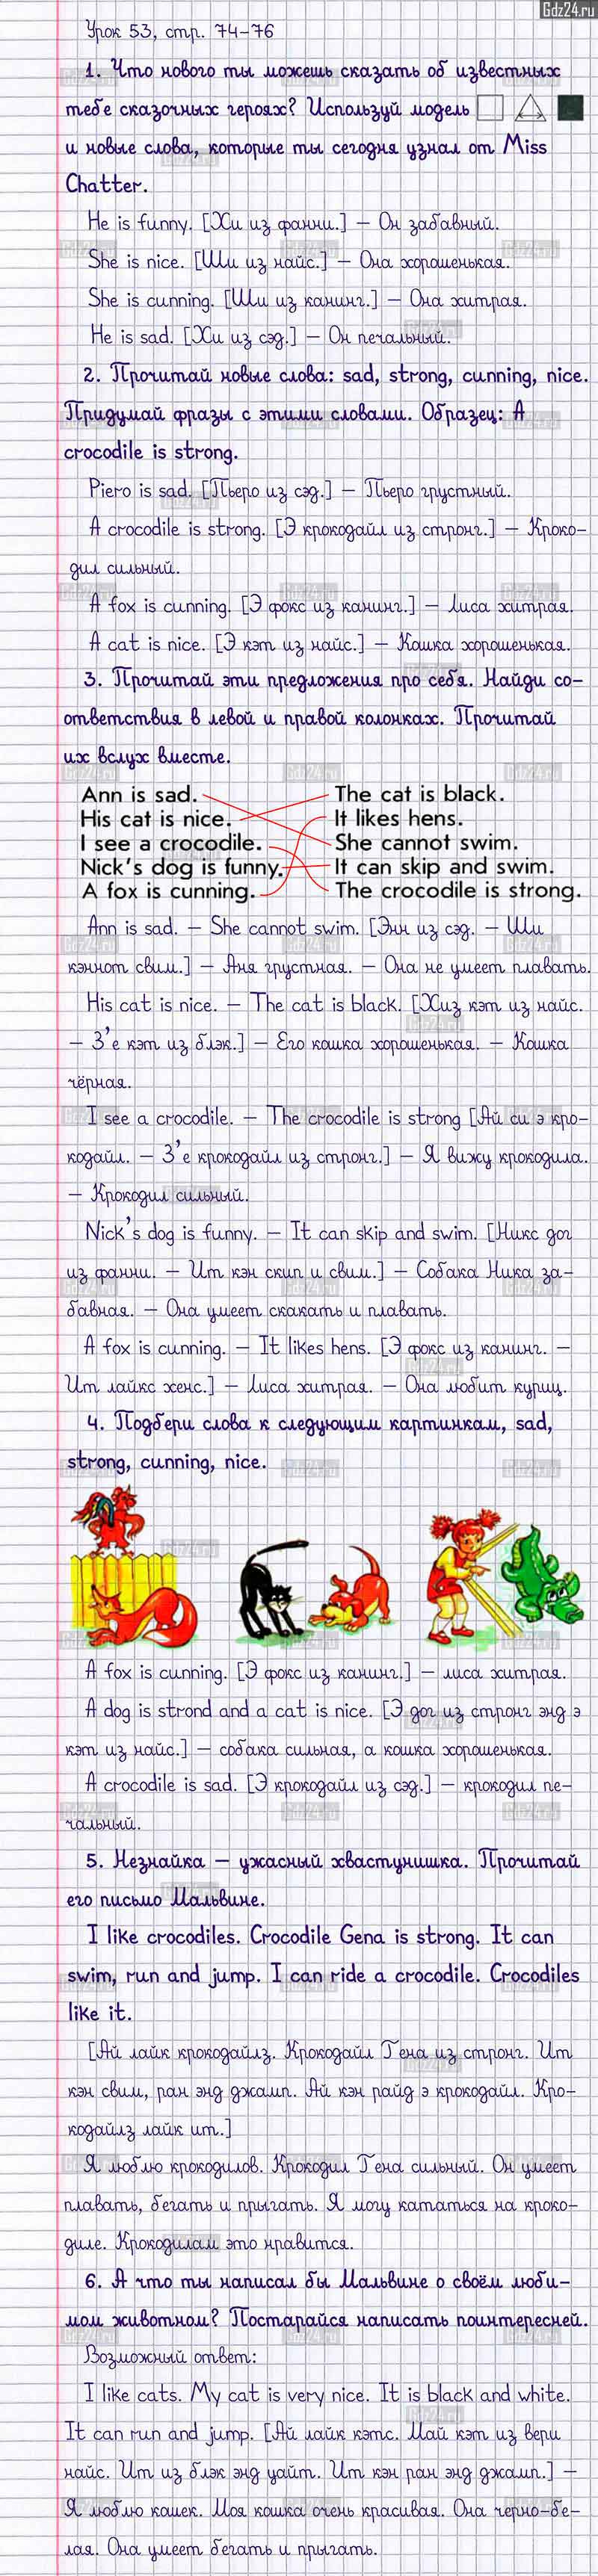 Gdz24.ru
Урок 53, стр. 74-76
1. Что нового ты можешь сказать об известных
тебе сказочных героях? Используй модель
и новые слова, которые ты сегодня узнал от Miss
Chatter.
He is funny. [Хи из фанни.] – Он забавный.
She is nice. [Ши из найс.] – Она хорошенькая.
She is cunning. [Ши из канинг.] – Она хитрая.
He is sad. [Хи из сэд.] – Он печальный.
2. Прочитай новые слова: sad, strong, cunning, nice.
Придумай фразы с этими словами. Образец: A
crocodile is strong.
Piero is sad. [Пьеро из сэд.] – Пьеро грустный.
A crocodile is strong. [Э крокодайл из стронг.] – Кроко-
дил сильный.
A fox is cunning. [Э фокс из канинг.] – Лиса хитрая.
A cat is nice. [Э кэт из найс.] – Кошка хорошенькая.
3. Прочитай эти предложения про себя. Найди со-
ответствия в левой и правой колонках. Прочитай
их вслух вместе.
Ann is sad. The cat is black.
His cat is nice. It likes hens.
I see a crocodile. She cannot swim.
Nick's dog is funny. It can skip and swim.
A fox is cunning. The crocodile is strong.
Ann is sad. – She cannot swim. [Энн из сэд. – Ши
кэннот свим.] – Аня грустная. – Она не умеет плавать.
His cat is nice. – The cat is black. [Хиз кэт из найс.
– З'е кэт из блэк.] – Его кошка хорошенькая. – Кошка
чёрная.
I see a crocodile. – The crocodile is strong [Ай си э кро-
кодайл. – З'е крокодайл из стронг.] – Я вижу крокодила.
– Крокодил сильный.
Nick's dog is funny. – It can skip and swim. [Никс дог
из фанни. – Ит кэн скип и свим.] – Собака Ника за-
бавная. – Она умеет скакать и плавать.
A fox is cunning. – It likes hens. [Э фокс из канинг. –
Ит лайкс хенс.] – Лиса хитрая. – Она любит куриц.
4. Подбери слова к следующим картинкам, sad,
strong, cunning, nice.
A fox is cunning. [Э фокс из канинг.] – лиса хитрая.
A dog is strond and a cat is nice. [Э дог из стронг энд э
кэт из найс.] – собака сильная, а кошка хорошенькая.
A crocodile is sad. [Э крокодайл из сэд.] – крокодил пе-
чальный.
5. Незнайка – ужасный хвастунишка. Прочитай
его письмо Мальвине.
I like crocodiles. Crocodile Gena is strong. It can
swim, run and jump. I can ride a crocodile. Crocodiles
like it.
[Ай лайк крокодайлз. Крокодайл Гена из стронг. Ит
кэн свим, ран энд джамп. Ай кэн райд э крокодайл. Кро-
кодайлз лайк ит.]
Я люблю крокодилов. Крокодил Гена сильный. Он умеет
плавать, бегать и прыгать. Я могу кататься на кроко-
диле. Крокодилам это нравится.
6. А что ты написал бы Мальвине о своём люби-
мом животном? Постарайся написать поинтересней.
Возможный ответ:
I like cats. My cat is very nice. It is black and white.
It can run and jump. [Ай лайк кэтс. Май кэт из вери
найс. Ит из блэк энд уайт. Ит кэн ран энд джамп.] –
Я люблю кошек. Моя кошка очень красивая. Она черно-бе-
лая. Она умеет бегать и прыгать.